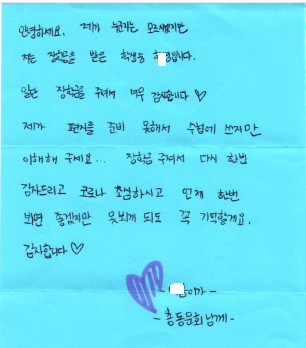 안녕하세요. 제가 누군지는 모르시겠지만
저는 장학금을 받은 학생 입니다.
일단 장학금을 주셔서 매우 감사합니다 ♡
제가 편지를 준비 못해서 수첩에 쓰지만
이해해 주세요... 장학금 주셔서 다시 한번
감사드리고 코로나 조심하시고 언제 한번
뵈면 좋겠지만 못뵈게 되도 꼭 기억할게요.
감사합니다♡
- 이가 -
- 총동문회님께 -